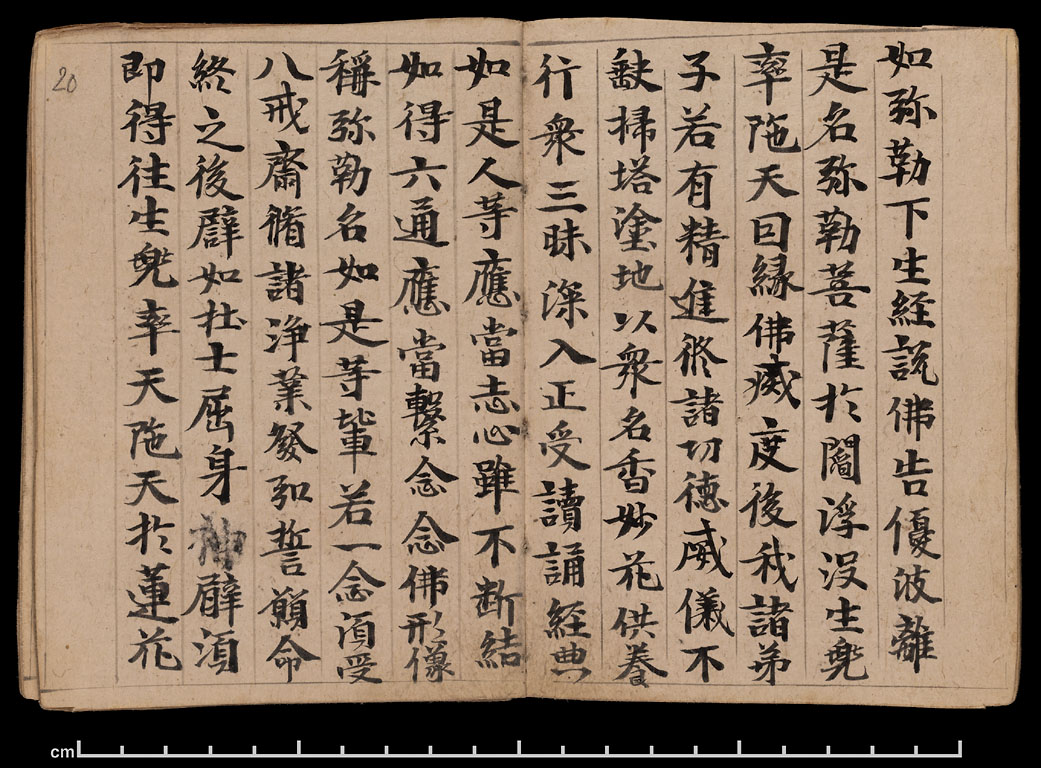 如弥勒下生经説佛告優波離
是名弥勒菩薩於閻浮没生兜
率陁天因縁佛滅度後我諸弟
子若有精進修諸功德威儀不
缺掃塔塗地以衆名香妙花供養
行衆三昧深入正受讀誦經典
如是人等應當志心雖不断結
如得六通應當繫念念佛形像
稱弥勒名如是等輩若一念湏受
八戒齋脩諸浄業發弘誓願命
終之後譬如壮士屈身神臂湏
即得往生兜率天陁天於蓮花
20
cm